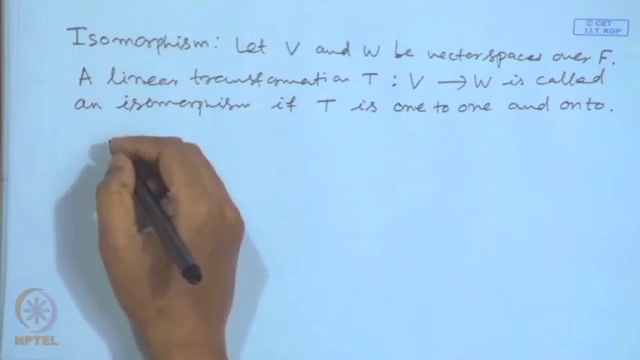 © CET
I.I.T. KGP
Isomorphism: Let V and W be vector spaces over F.
A linear transformation T : V → W is called
an isomorphism if T is one to one and onto.
NPTEL